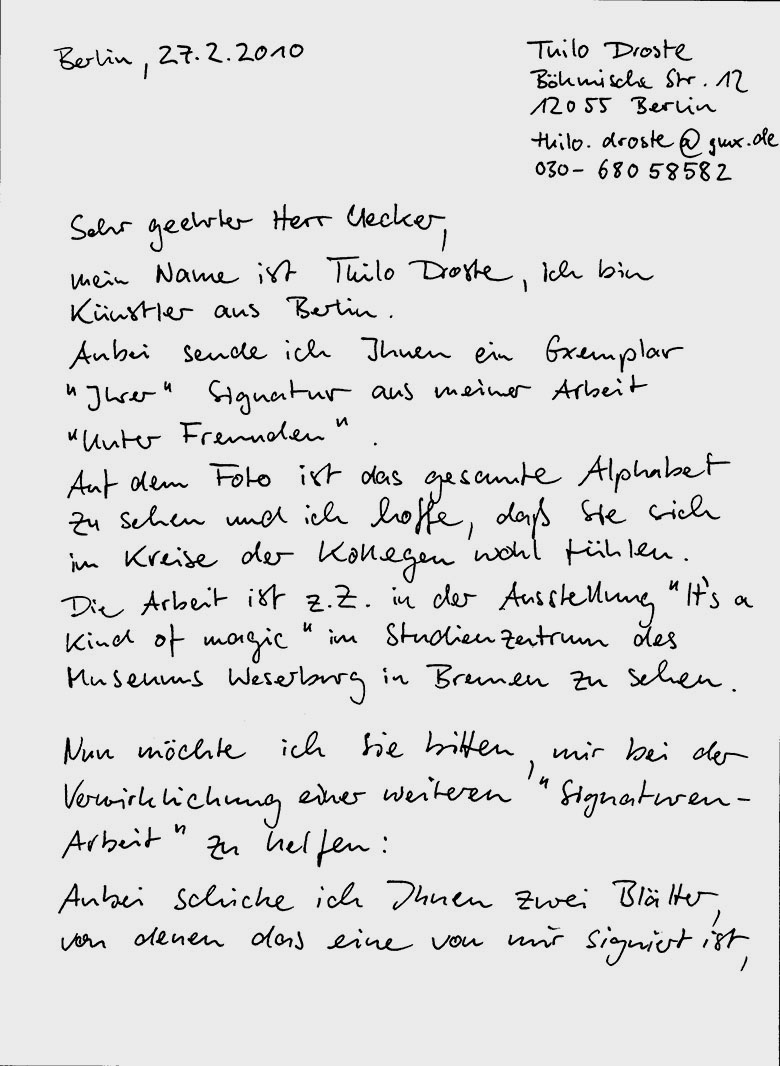 Berlin, 27.2.2010
Thilo Droste
Böhmische Str. 12
12055 Berlin
thilo.droste@gmx.de
030-680 58582
Sehr geehrter Herr Uecker,
mein Name ist Thilo Droste, ich bin
Künstler aus Berlin.
Anbei sende ich Ihnen ein Exemplar
"Ihrer" Signatur aus meiner Arbeit
"Unter Freunden".
Auf dem Foto ist das gesamte Alphabet
zu sehen und ich hoffe, daß Sie sich
im Kreise der Kollegen wohl fühlen.
Die Arbeit ist z.Z. in der Ausstellung "It's a
Kind of magic" im Studienzentrum des
Museums Weserburg in Bremen zu sehen.
Nun möchte ich Sie bitten, mir bei der
Verwirklichung einer weiteren "Signaturen-
Arbeit" zu helfen:
Anbei schicke ich Ihnen zwei Blätter,
von denen das eine von mir signiert ist,